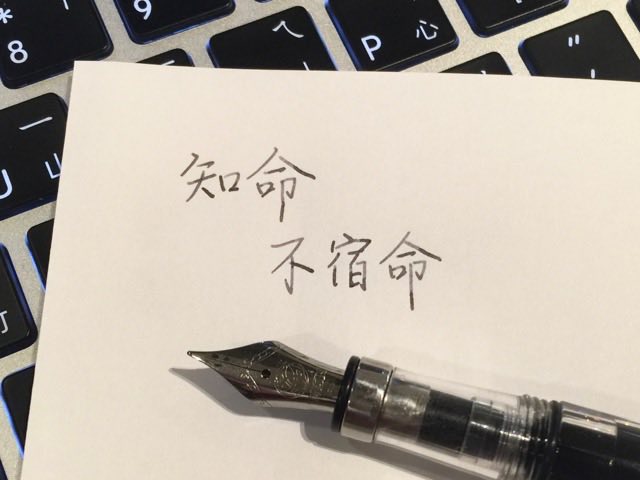 *
8
9
ㄟ
P 心
"
一
U 山
知命
不宿命